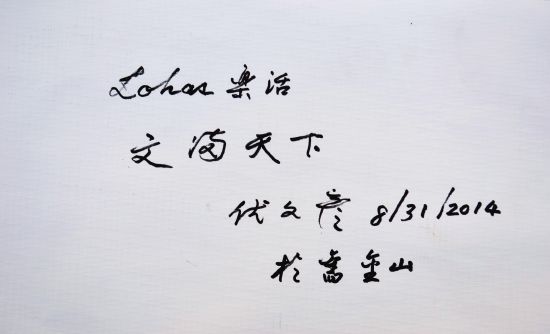 Lohas 樂活
文滿天下
伏文彦 8/31/2014
於舊金山